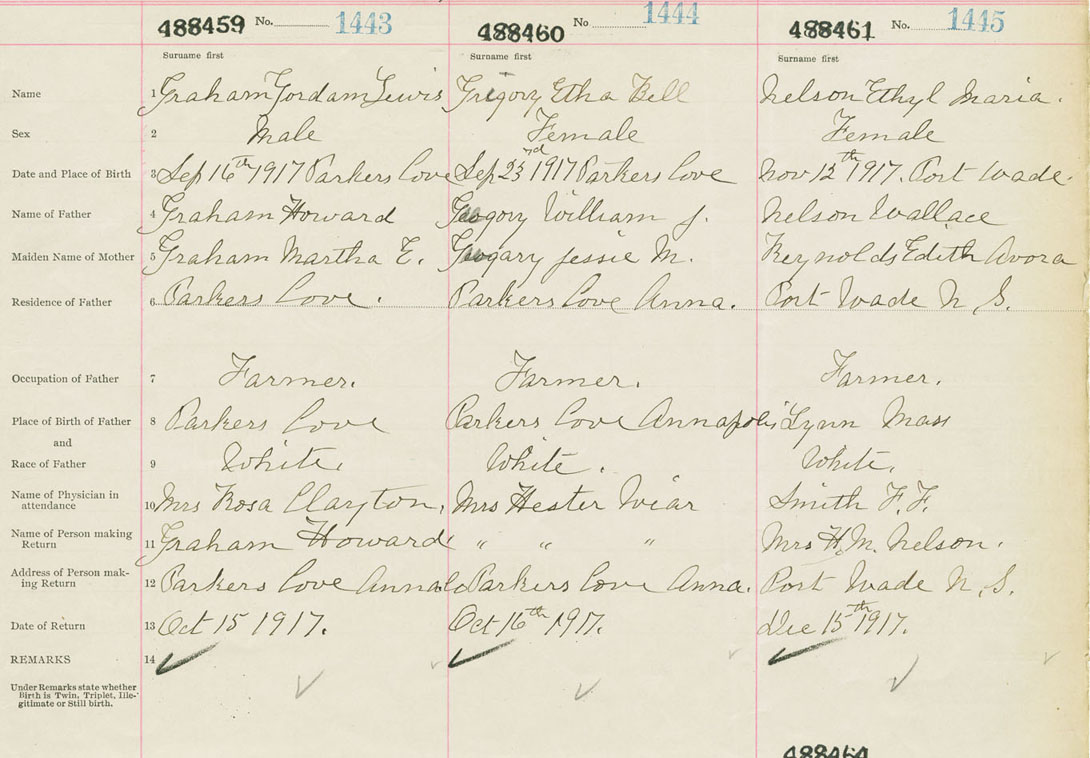 488459 No. 1443 488460 No 1444 488461 No. 1445
Surname first Surname first Surname first
Name 1 Graham Jordam Lewis Gregory Etha Bell Nelson Ethyl Maria.
Sex 2 Male Female Female
Date and Place of Birth 3 Sep 16th 1917 Parkers Cove Sep 23rd 1917 Parkers Cove Nov 12th 1917. Port Wade.
Name of Father 4 Graham Howard Gregory William J. Nelson Wallace
Maiden Name of Mother 5 Graham Martha E. Gregary Jessie M. Reynolds Edith Avora
Residence of Father 6 Parkers Cove. Parkers Cove Anna. Port Wade N.S.
Occupation of Father 7 Farmer. Farmer. Farmer.
Place of Birth of Father 8 Parkers Cove Parkers Cove Annapolis Lynn Mass
and
Race of Father 9 White. White. White.
Name of Physician in
attendance 10 Mrs Rosa Clayton. Mrs Hester Wiar Smith F.F.
Name of Person making
Return 11 Graham Howard " " " Mrs H.M. Nelson.
Address of Person mak-
ing Return 12 Parkers Cove Anna Co Parkers Cove Anna. Port Wade N.S.
Date of Return 13 Oct 15 1917. Oct 16th 1917. Dec 15th 1917.
REMARKS 14
Under Remarks state whether
Birth is Twin, Triplet, Ille-
gitimate or Still birth.